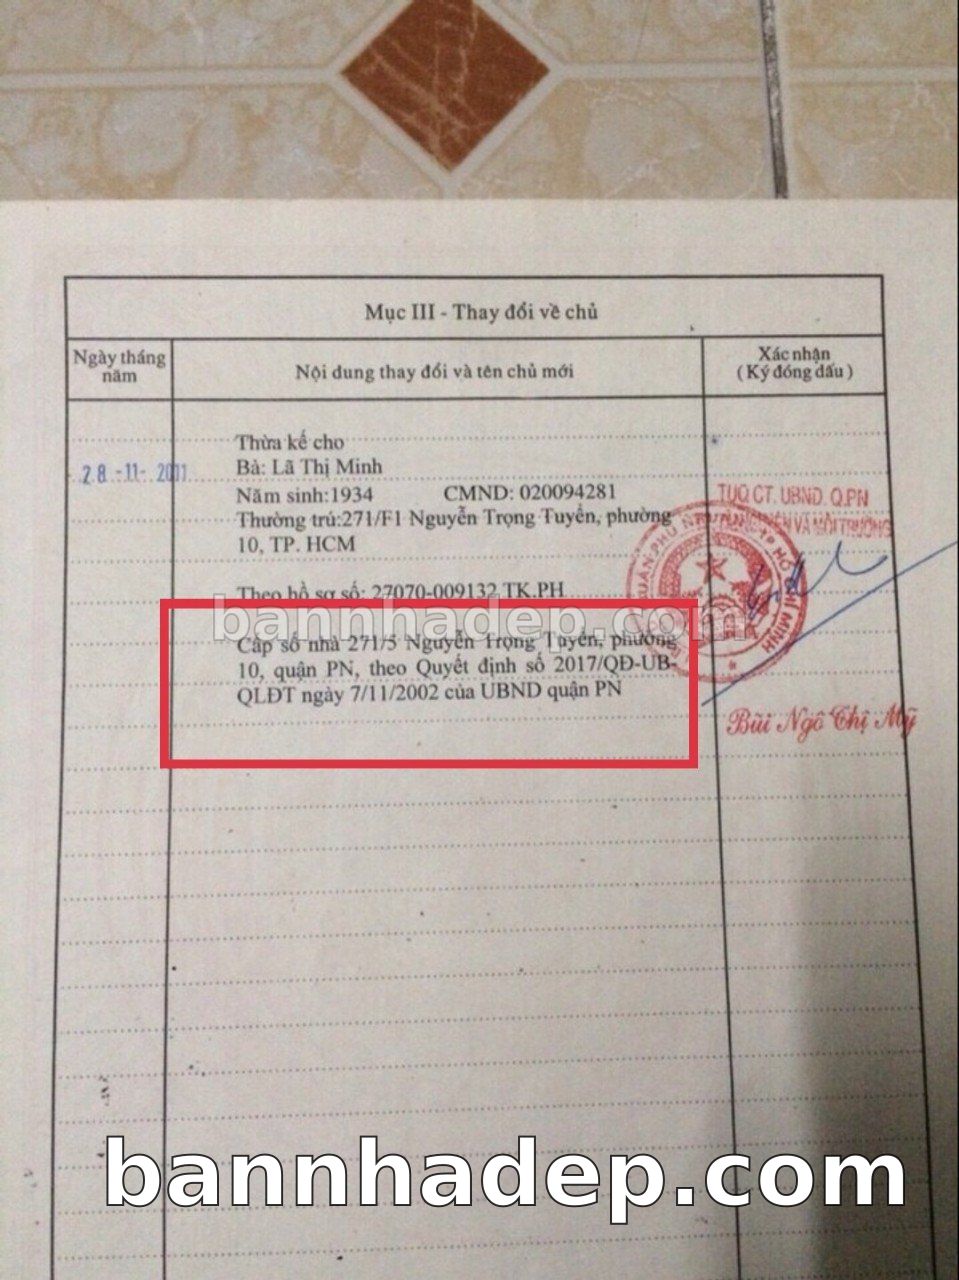 Mục III - Thay đổi về chủ
Ngày tháng năm
Nội dung thay đổi và tên chủ mới
Xác nhận
( Ký đóng dấu )
28 -11- 2011
Thừa kế cho
Bà: Lã Thị Minh
Năm sinh:1934 CMND: 020094281
Thường trú:271/F1 Nguyễn Trọng Tuyển, phường
10, TP. HCM
Theo hồ sơ số: 27070-009132 TK.PH
bannhadep.com
Cấp số nhà 271/5 Nguyễn Trọng Tuyển, phường
10, quận PN, theo Quyết định số 2017/QĐ-UB-
QLĐT ngày 7/11/2002 của UBND quận PN
TUQ CT. UBND. Q.PN
VÀ MÔI TRƯỜNG
QUẬN PHÚ NHUẬN TP HỒ CHÍ MINH
Bùi Ngô Thị Mỹ
bannhadep.com